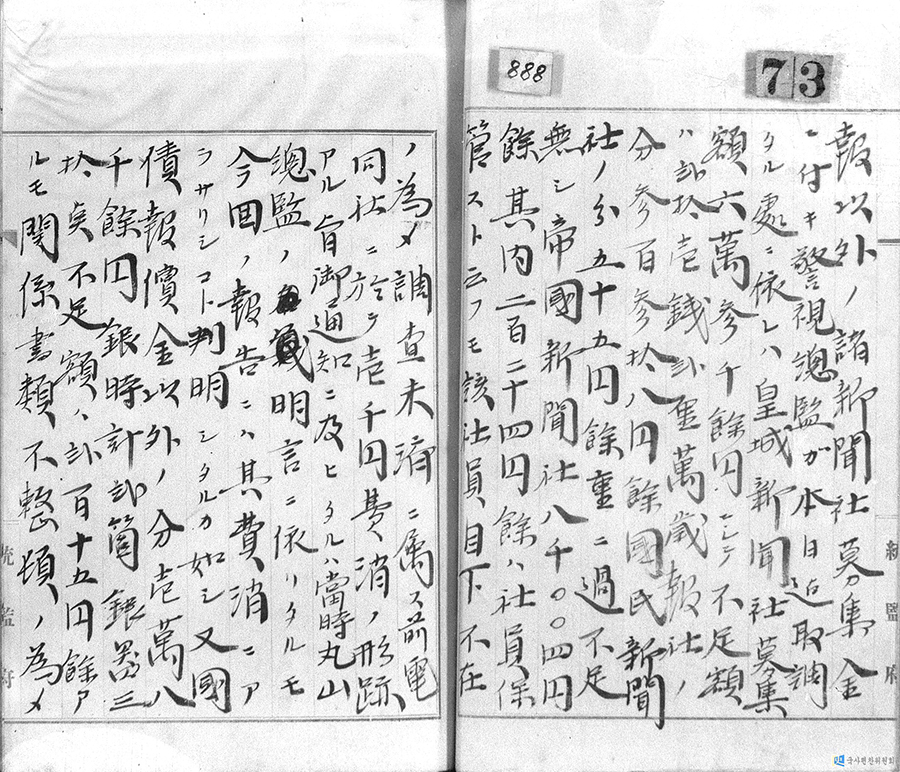 888
73
報以外ノ諸新聞社募集金
ニ付キ警視總監ガ本日迄取調
タル處ニ依レハ皇城新聞社募集
額六萬參千餘円ニシテ不足額
ハ貳拾壱錢貳厘萬歳報社ノ
分參百參拾八円餘國民新聞
社ノ分五十五円餘重ニ過不足
無シ帝國新聞社八千〇〇四円
餘其内二百二十四円餘ハ社員保
管ストニ云フモ該社員目下不在
ノ為メ調査未濟ニ属ス前電
同社ニ於テ壱千円費消ノ形跡
アル旨御通知ニ及ヒタルハ當時丸山
總監ノ明言ニ依リタルモ
今回ノ報告ニハ其費消ニア
ラサリシコト判明シタルカ如シ又國
債報償金以外ノ分壱萬八
千餘円銀時計貳箇銀器三
拾矣不足額ハ貳百十五円餘ア
ルモ関係書類不整頓ノ為メ
統監府
統監府
국사편찬위원회